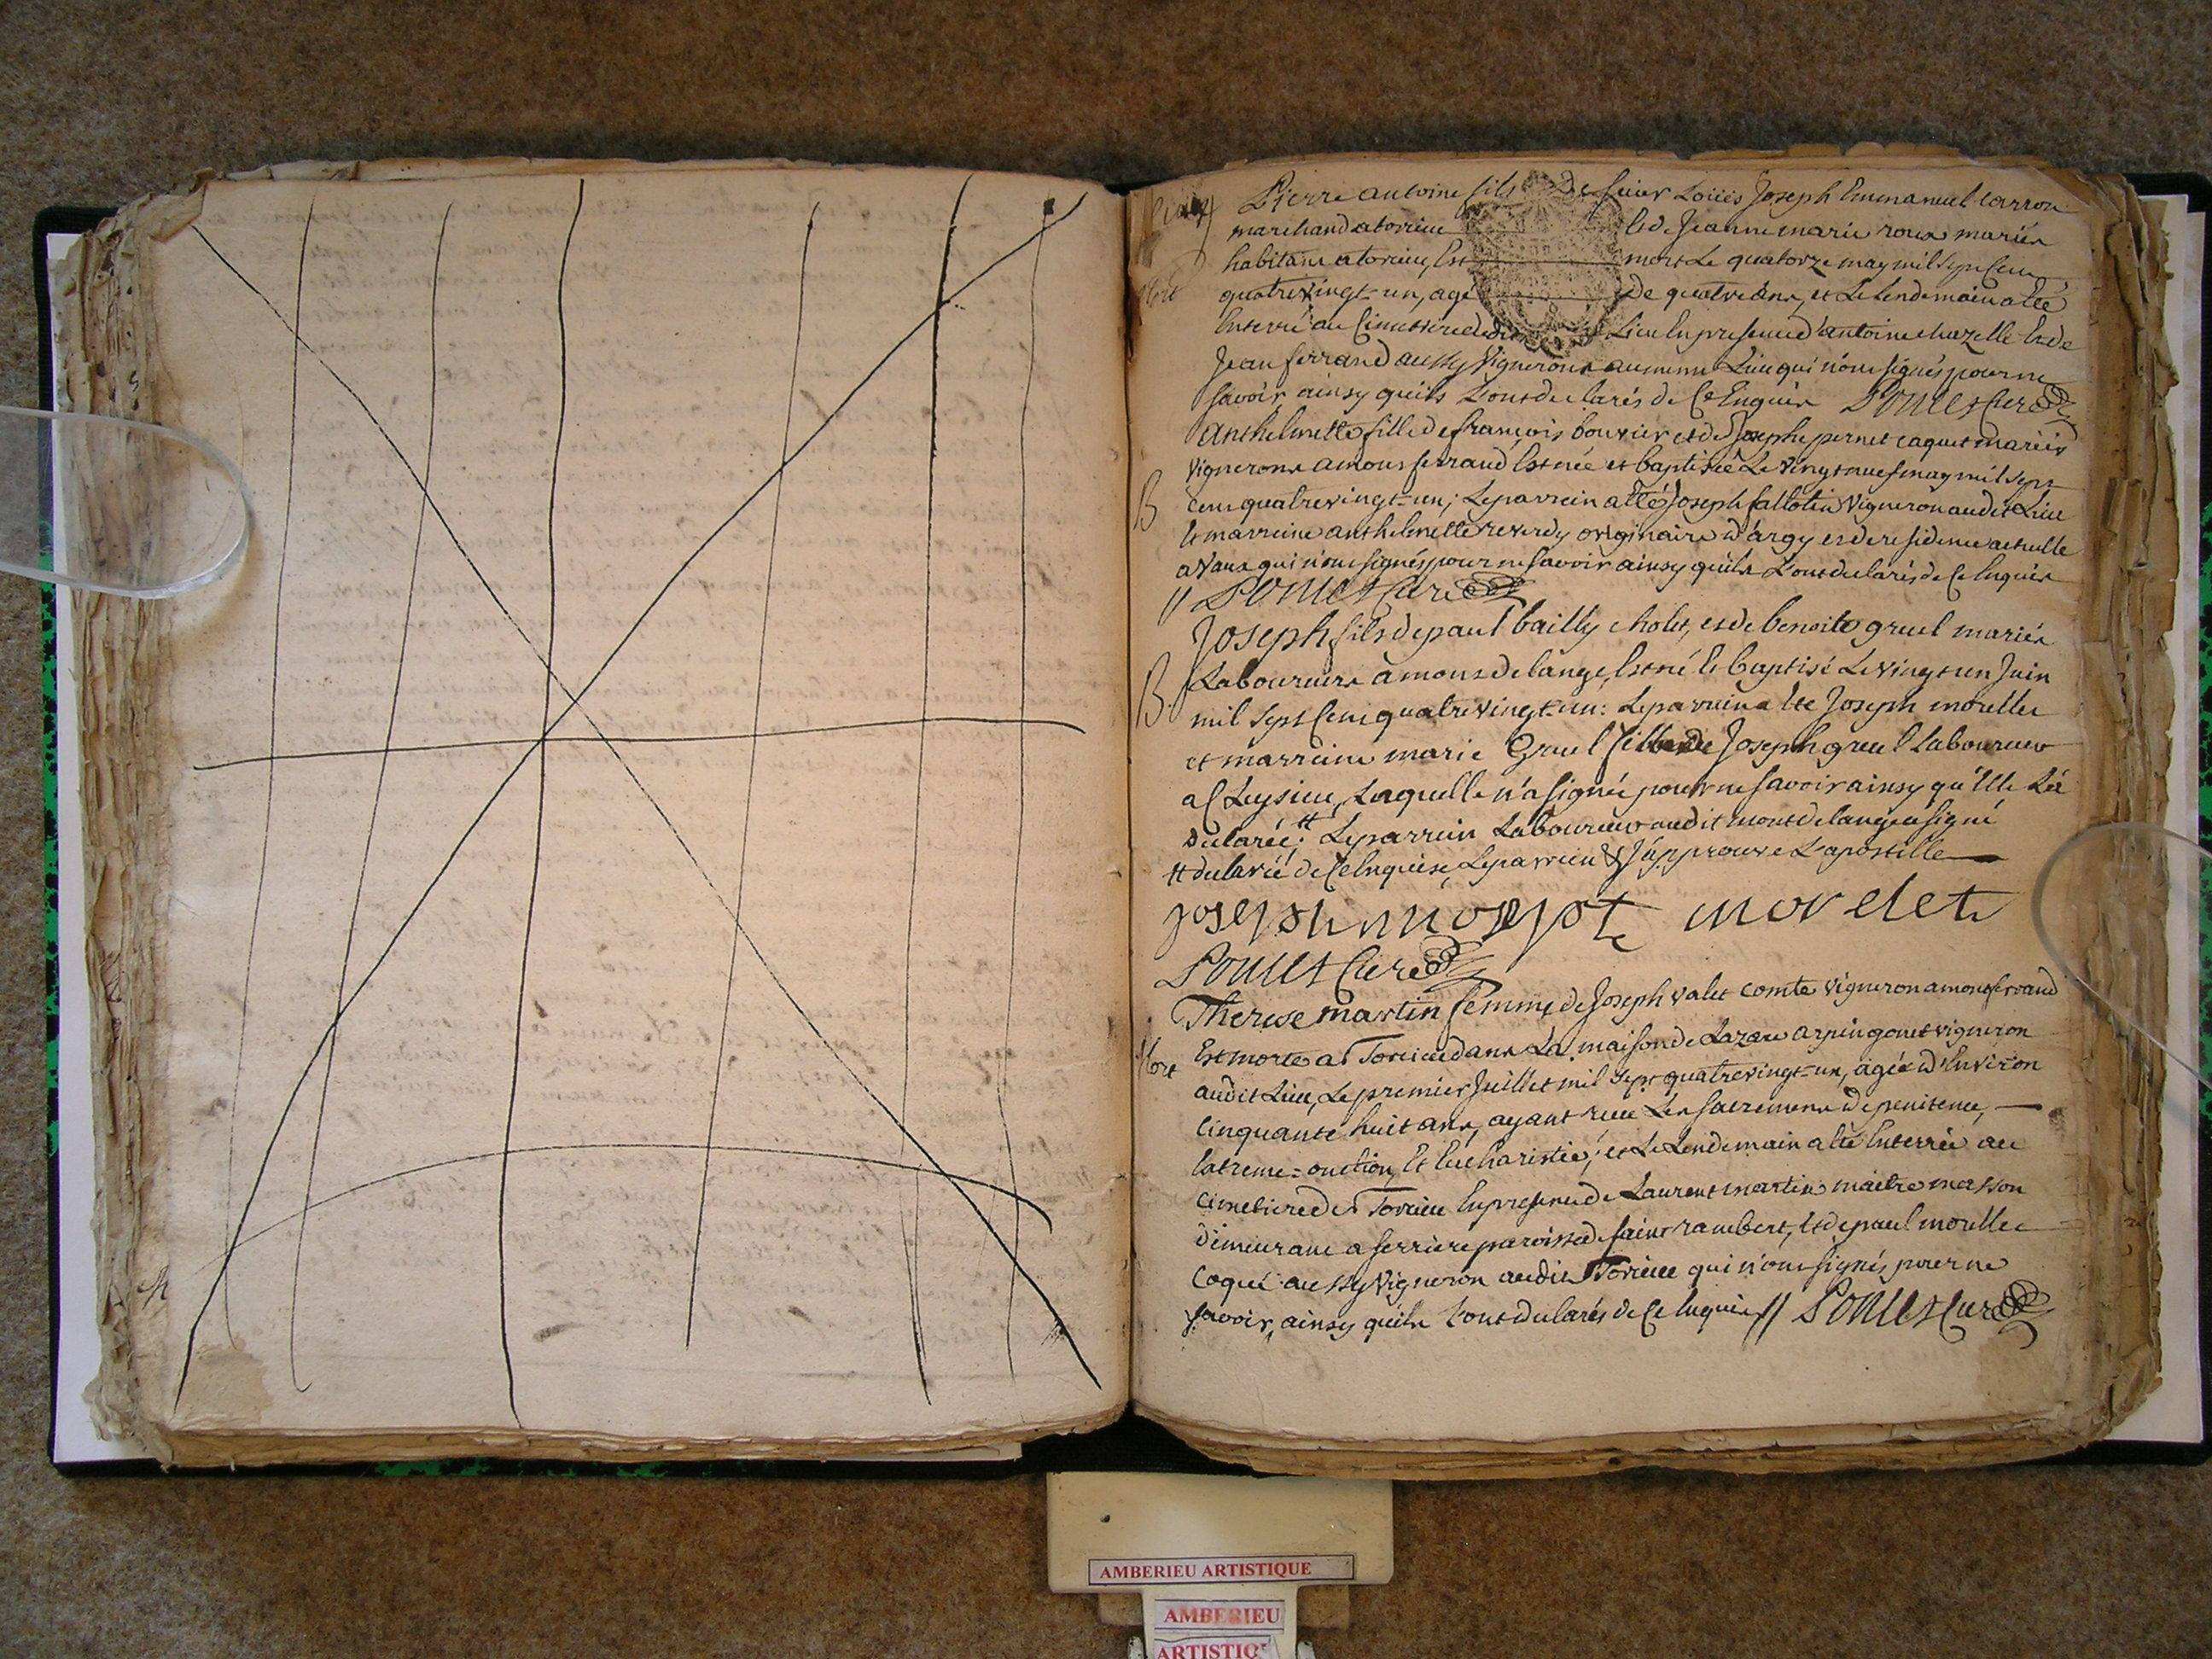 Pierre antoine fils De sieur Loüis Joseph Emmanuel carron
marchand a torcieu et de Jeanne marie roux mariés
habitans a torcieu, Est mort Le quatorze may mil sept Cent
Mort
quatrevingt-un, agé de quatre ans, et Le lendemain a été
Enterré au Cimetiere dudit Lieu En presence d'antoine chazelle et de
Jean ferrand aussy vignerons au meme Lieu qui n'ont signés pour ne
savoir ainsy qu'ils L'ont declarés de Ce Enquis Poncet Curé
Anthelmette fille de françois bouvier et de Josephe pernet caquet mariés
vignerons a mont ferrand Est née et baptisée Le vingt neuf may mil sept
B
Cent quatrevingt-un; Le parrein a été Joseph fallotin vigneron audit Lieu
et marreine anthelmette reverdy originaire d'argy et de residence actuelle
a Vaux qui n'ont signés pour ne savoir ainsy qu'ils L'ont declarés de Ce Enquis
// Poncet Curé
Joseph fils de paul bailly cholet, et de benoite greul mariés
Laboureurs a mont de lange, Est né et baptisé Le vingt un Juin
B.
mil sept Cent quatrevingt-un: Le parrein a été Joseph morellet
et marreine marie Greul fille de Joseph greul Laboureur
a Cleyzieu, Laquelle n'a signée pour ne savoir ainsy qu'Elle L'a
declarée; tt Le parrein Laboureur audit mont de lange a signé
tt declarée de Ce Enquise, Le parrein & J'approuve L'apostille
joseph morelet
Poncet Curé
Therese martin femme de Joseph valet comte vigneron a mont ferrand
Mort
Est morte a Torcieu dans La maison de Lazare arpin gonet vigneron
audit Lieu, Le premier Juillet mil sept quatrevingt-un, agée d'Environ
Cinquante huit ans, ayant reçu Les sacremens de penitence,
Extreme=onction, Et Eucharistie; et Le Lendemain a été Enterrée au
Cimetiere de Torcieu En presence de Laurent martin maitre masson
demeurant a serriere paroisse de saint rambert, et de paul morellet
coque aussy vigneron audit Torcieu qui n'ont signés pour ne
savoir, ainsy qu'ils L'ont declarés de Ce Enquis // Poncet Curé
AMBERIEU ARTISTIQUE
AMBERIEU
ARTISTIQ